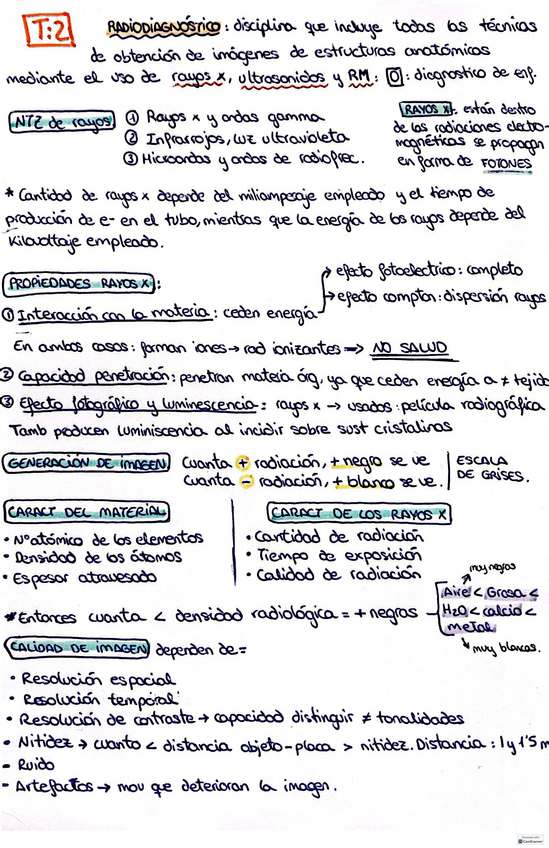 T:2
RADIODIAGNÓSTICO: disciplina que incluye todas las técnicas
de obtención de imágenes de estructuras anatómicas
mediante el uso de rayos x, ultrasonidos y RM: O: diagnostico de enf.
NTZ de rayos
① Rayos x y ondas gamma
② Infrarrojos, luz ultravioleta
③ Microondas y ondas de radiofrec.
RAYOS X: están dentro
de las radiaciones electro-
magnéticas se propagan
en forma de FOTONES
* Cantidad de rayos x depende del miliamperaje empleado y el tiempo de
producción de e- en el tubo, mientras que la energía de los rayos depende del
Kilovoltaje empleado.
PROPIEDADES RAYOS X:
① Interacción con la materia: ceden energía
→ efecto fotoelectrico: completo
→ efecto compton: dispersión rayos
En ambos casos: forman iones → rad ionizantes => NO SALUD
② Capacidad penetración: penetran materia órg, ya que ceden energía a ≠ tejid
③ Efecto fotográfico y luminescencia: rayos x → usados: película radiográfica
Tamb producen luminiscencia al incidir sobre sust cristalinas
GENERACIÓN DE IMAGEN
Cuanta + radiación, + negro se ve
Cuanta - radiación, + blanco se ve.
ESCALA
DE GRISES.
CARACT DEL MATERIAL
• Nº atómico de los elementos
• Densidad de los átomos
• Espesor atravesado
CARACT DE LOS RAYOS X
• Cantidad de radiación
• Tiempo de exposición
• Calidad de radiación
* Entonces cuanta < densidad radiológica = + negras
muy negras
Aire < Grasa <
H2O < calcio <
metal
muy blancas.
CALIDAD DE IMAGEN dependen de =
• Resolución espacial
• Resolución temporal
• Resolución de contraste → capacidad distinguir ≠ tonalidades
• Nitidez → cuanto < distancia objeto-placa > nitidez. Distancia: 1 y 1'5 m
- Ruido
- Artefactos → mov que deterioran la imagen.
CamScanner